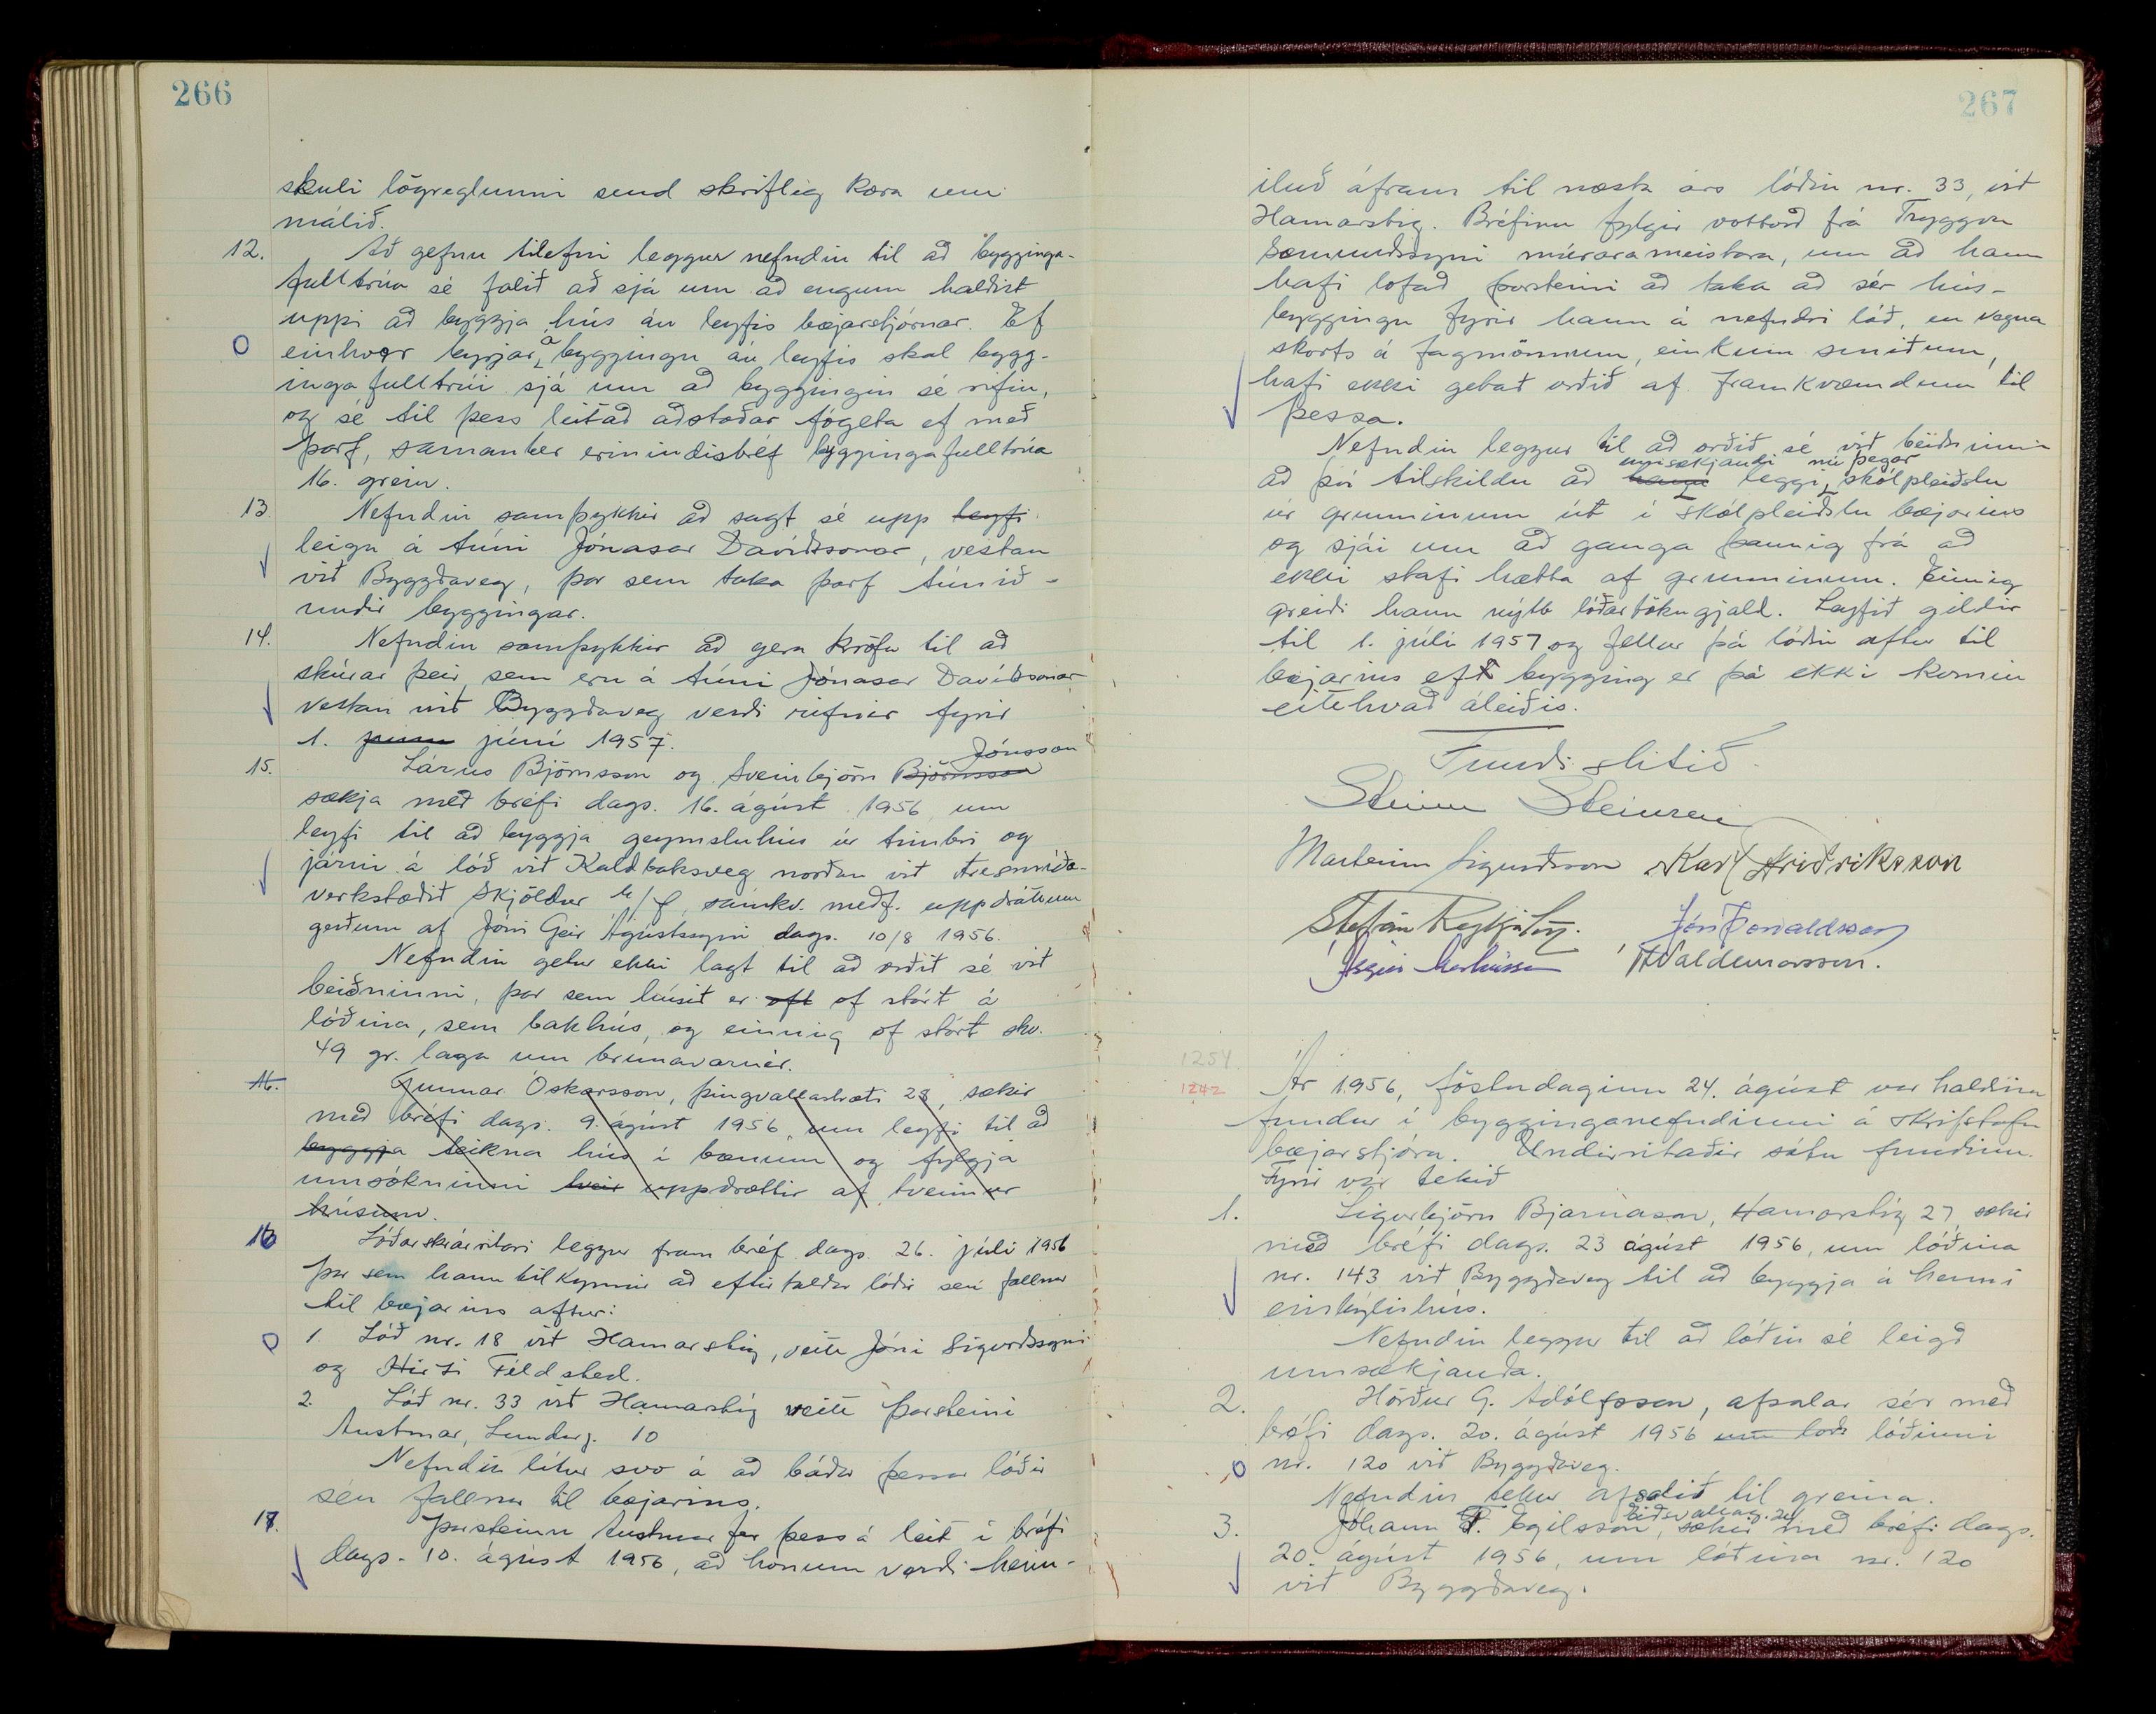 266
skuli lögreglunni send skrifleg kæra um
málið.
12. Að gefnu tilefni leggur nefndin til að bygginga-
fulltrúa sé falið að sjá um að engum haldist
uppi að byggja hús án leyfis bæjarstjórnar. Ef
einhver byrjar á byggingu án leyfis skal bygg-
ingafulltrúi sjá um að byggingin sé rifin,
og sé til þess leitað aðstoðar fógeta ef með
þarf, samanber erinindisbréf byggingafulltrúa
16. grein.
13. Nefndin samþykkir að sagt sé upp leyfi
leigu á túni Jónasar Davíðssonar, vestan
við Byggðaveg, þar sem taka þarf túnið
undir byggingar.
14. Nefndin samþykkir að gera kröfu til að
skúrar þeir, sem eru á túni Jónasar Davíðssonar
vestan við Byggðaveg verði rifnir fyrir
1. júní 1957.
15. Lárus Björnsson og Sveinbjörn Björnsson Jónsson
sækja með bréfi dags. 16. ágúst 1956 um
leyfi til að byggja geymsluhús úr timbri og
járni á lóð við Kaldbaksveg norðan við tresmíða-
verkstæðið Skjöldur h/f, samkv. meðf. uppdráttum
gerðum af Jóni Geir Ágústssyni dags. 10/8 1956.
Nefndin getur ekki lagt til að orðið sé við
beiðninni, þar sem húsið er oft of stórt á
lóðina, sem bakhús, og einnig of stórt skv.
49 gr. laga um brunavarnir.
16. Gunnar Óskarsson, Þingvallastræti 28, sækir
með bréfi dags. 9. ágúst 1956, um leyfi til að
byggja teikna hús í bænum og fylgja
umsókninni tveir uppdrættir af tveimur
húsum.
16 Lóðarskrárritari leggur fram bréf dags. 26. júlí 1956
þar sem hann tilkynnir að eftir taldar lóðir séu fallnar
til bæjarins aftur:
1. Lóð nr. 18 við Hamarstíg, veitt Jóni Sigurðssyni
og Hirti Fjeldsted.
2. Lóð nr. 33 við Hamarstíg veitt Þorsteini
Austmar, Lundarg. 10
Nefndin lítur svo á að báðar þessar lóðir
séu fallnar til bæjarins.
17. Þorsteinn Austmar fer þess á leit í bréfi
dags. 10. ágúst 1956, að honum verði heim-
267
iluð áfram til næsta árs lóðin nr. 33, við
Hamarstíg. Bréfinu fylgir vottorð frá Tryggva
Sæmundssyni múrarameistara, um að hann
hafi lofað Þorsteini að taka að sér hús-
byggingu fyrir hann á nefndri lóð, en vegna
skorts á fagmönnum, einkum smiðum,
hafi ekki getað orðið af framkvæmdum til
þessa.
Nefndin leggur til að orðið sé við beiðninni
að því tilskildu að umsækjandi leggi nú þegar skólpleiðslu
úr grunninum út í skólpleiðslu bæjarins
og sjái um að ganga þannig frá að
ekki stafi hætta af grunninum. Einnig
greiði hann nýtt lóðartökugjald. Leyfið gildir
til 1. júlí 1957 og fellur þá lóðin aftur til
bæjarins ef bygging er þá ekki komin
eitthvað áleiðis.
Fundi slitið.
Steinn Steinsen
Marteinn Sigurðsson Karl Friðriksson
Stefán Reykjalín. Jón Þorvaldsson
Ásgeir Markússon Tr Valdemarsson.
1254
1242
Ár 1956, föstudaginn 24. ágúst var haldinn
fundur í bygginganefndinni á skrifstofu
bæjarstjóra. Undirritaðir sátu fundinn.
Fyrir var tekið
1. Sigurbjörn Bjarnason, Hamarstíg 27, sækir
með bréfi dags. 23 ágúst 1956, um lóðina
nr. 143 við Byggðaveg til að byggja á henni
einbýlishús.
Nefndin leggur til að lóðin sé leigð
umsækjanda.
2. Hörður G. Adólfsson, afsalar sér með
bréfi dags. 20. ágúst 1956 um lóð lóðinni
nr. 120 við Byggðaveg.
Nefndin tekur afsalið til greina.
3. Jóhann Egilsson, Eiðsvallag. sækir með bréfi dags.
20. ágúst 1956, um lóðina nr. 120
við Byggðaveg.